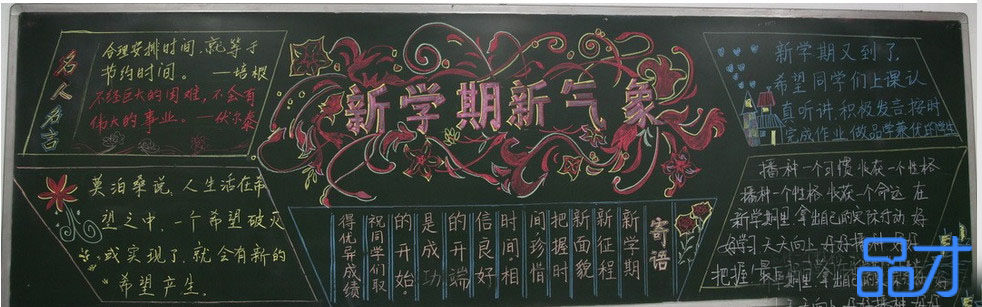 名人名言
合理安排时间,就等于
节约时间。 —培根
不经巨大的困难,不会有
伟大的事业。—伏尔泰
新学期新气象
新学期又到了,
希望同学们上课认
真听讲,积极发言,按时
完成作业,做品学兼优的学生
莫泊桑说,人生活在希
望之中,一个希望破灭
或实现了,就会有新的
希望产生。
寄语
新学期
新征程
新面貌
把握时
间珍惜
时间,相
信良好
的开端
是成功
的开始。
祝同学们取
得优异成绩
播种一个习惯 收获一个性格
播种一个性格 收获一个命运 在
新学期里 拿出自己的实际行动 好
好学习 天天向上
把握 里 拿出自己的
天天向上
品才